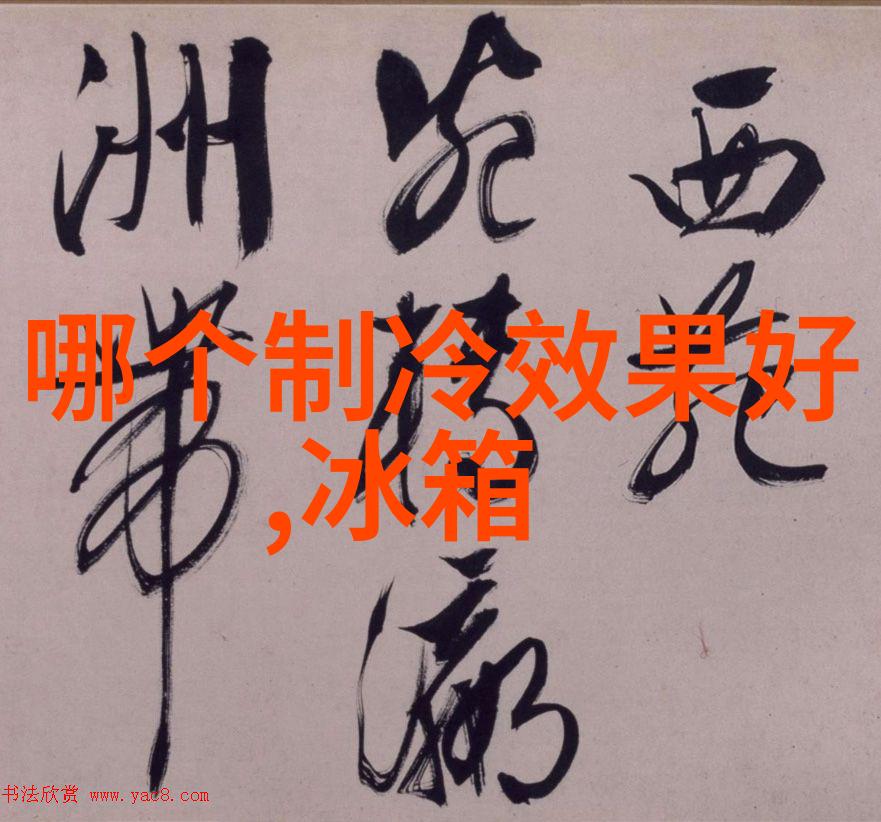 西苑
瀛
洲带
哪个制冷效果好
,冰箱
书法欣赏 www.yac8.com